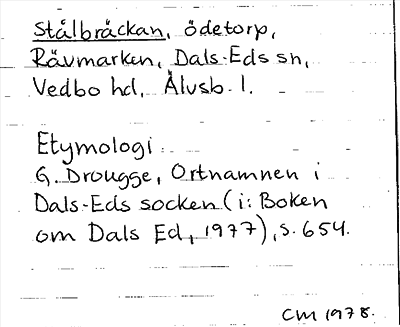 Stålbräckan, ödetorp,
Rävmarken, Dals-Eds sn,
Vedbo hd, Älvsb. l.
Etymologi
G. Drougge, Ortnamnen i
Dals-Eds socken (i: Boken
om Dals Ed, 1977), s. 654.
CM 1978.